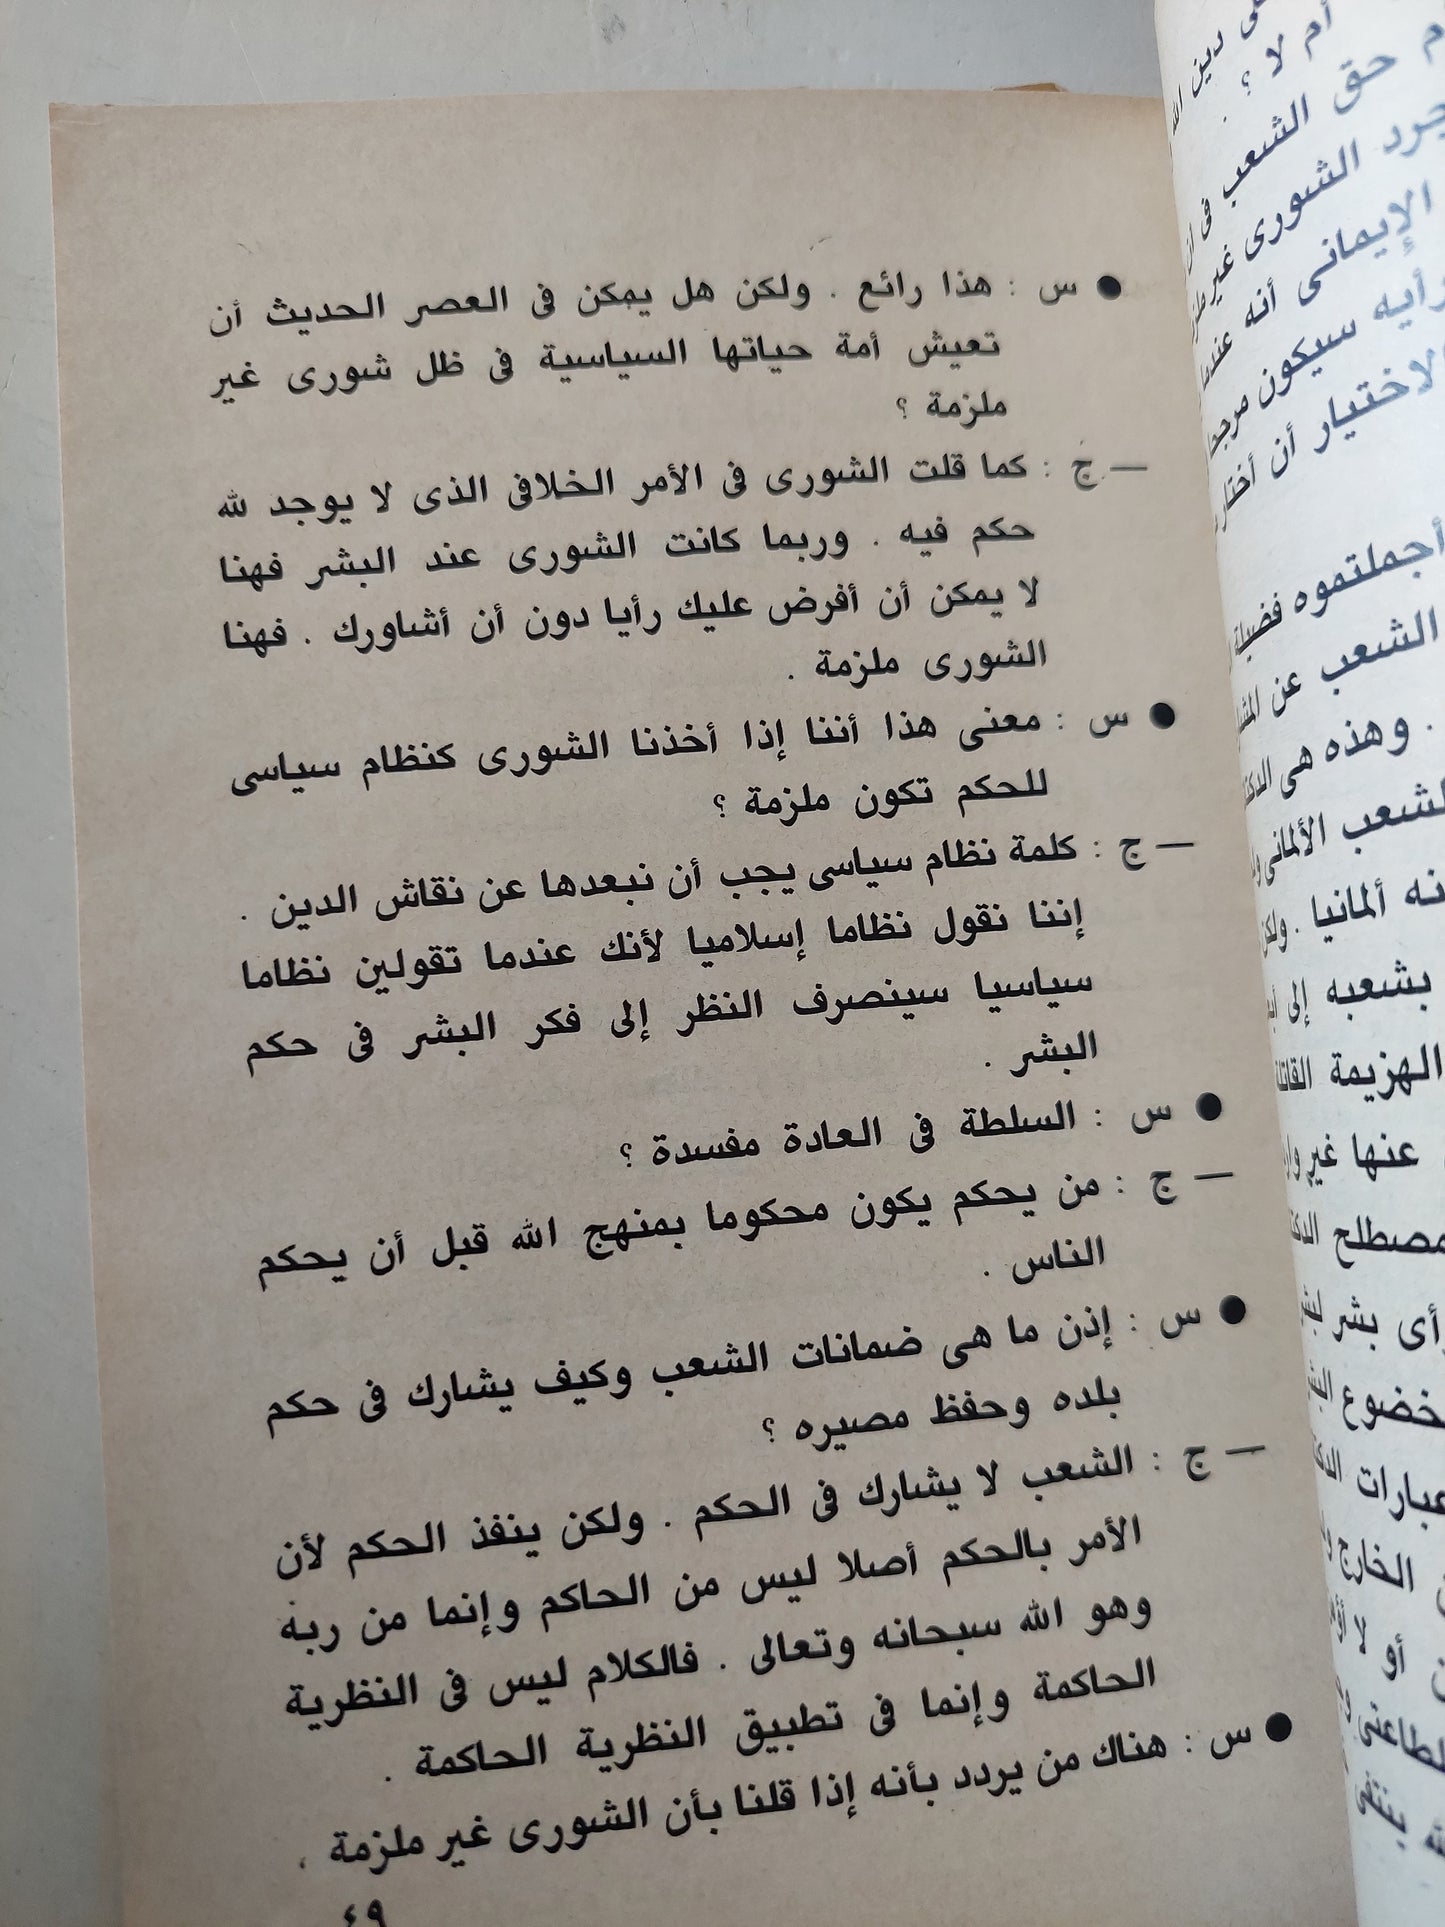 ● س : هذا رائع . ولكن هل يمكن فى العصر الحديث أن
تعيش أمة حياتها السياسية فى ظل شورى غير
ملزمة ؟
— ج : كما قلت الشورى فى الأمر الخلافى الذى لا يوجد لله
حكم فيه . وربما كانت الشورى عند البشر فهنا
لا يمكن أن أفرض عليك رأيا دون أن أشاورك . فهنا
الشورى ملزمة .
● س : معنى هذا أننا إذا أخذنا الشورى كنظام سياسى
للحكم تكون ملزمة ؟
— ج : كلمة نظام سياسى يجب أن نبعدها عن نقاش الدين .
إننا نقول نظاما إسلاميا لأنك عندما تقولين نظاما
سياسيا سينصرف النظر إلى فكر البشر فى حكم
البشر .
● س : السلطة فى العادة مفسدة ؟
— ج : من يحكم يكون محكوما بمنهج الله قبل أن يحكم
الناس .
● س : إذن ما هى ضمانات الشعب وكيف يشارك فى حكم
بلده وحفظ مصيره ؟
— ج : الشعب لا يشارك فى الحكم . ولكن ينفذ الحكم لأن
الأمر بالحكم أصلا ليس من الحاكم وإنما من ربه
وهو الله سبحانه وتعالى . فالكلام ليس فى النظرية
الحاكمة وإنما فى تطبيق النظرية الحاكمة .
● س : هناك من يردد بأنه إذا قلنا بأن الشورى غير ملزمة .
٤٩
أم لا ؟
حق الشعب فى
الشورى غير
الإيمانى أنه
سيكون
أن
أجملتموه فضيلة
الشعب عن
. وهذه هى
الألمانى
ألمانيا . ولكن
بشعبه إلى
الهزيمة
عنها غير
بشر
الخارج
أو لا